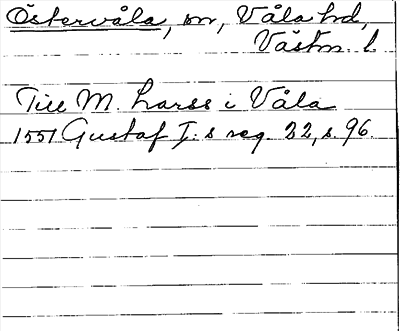 Östervåla, sn, Våla hd,
Västm. l.
Till M. Larss i Våla
1551 Gustaf I:s reg. 22, s. 96.